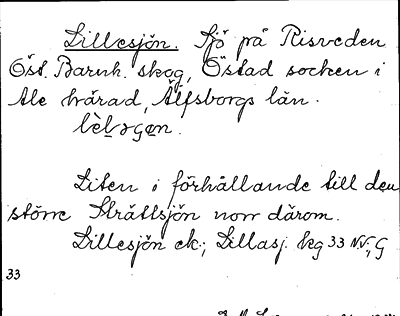 Lillesjön. Sjö på Risveden
Öst. Barnh. skog, Östad socken i
Ale härad, Älfsborgs län.
Liten i förhållande till den
större Skrållsjön norr därom.
Lillesjön ek.; Lillasj. kg 33 NV, G
33